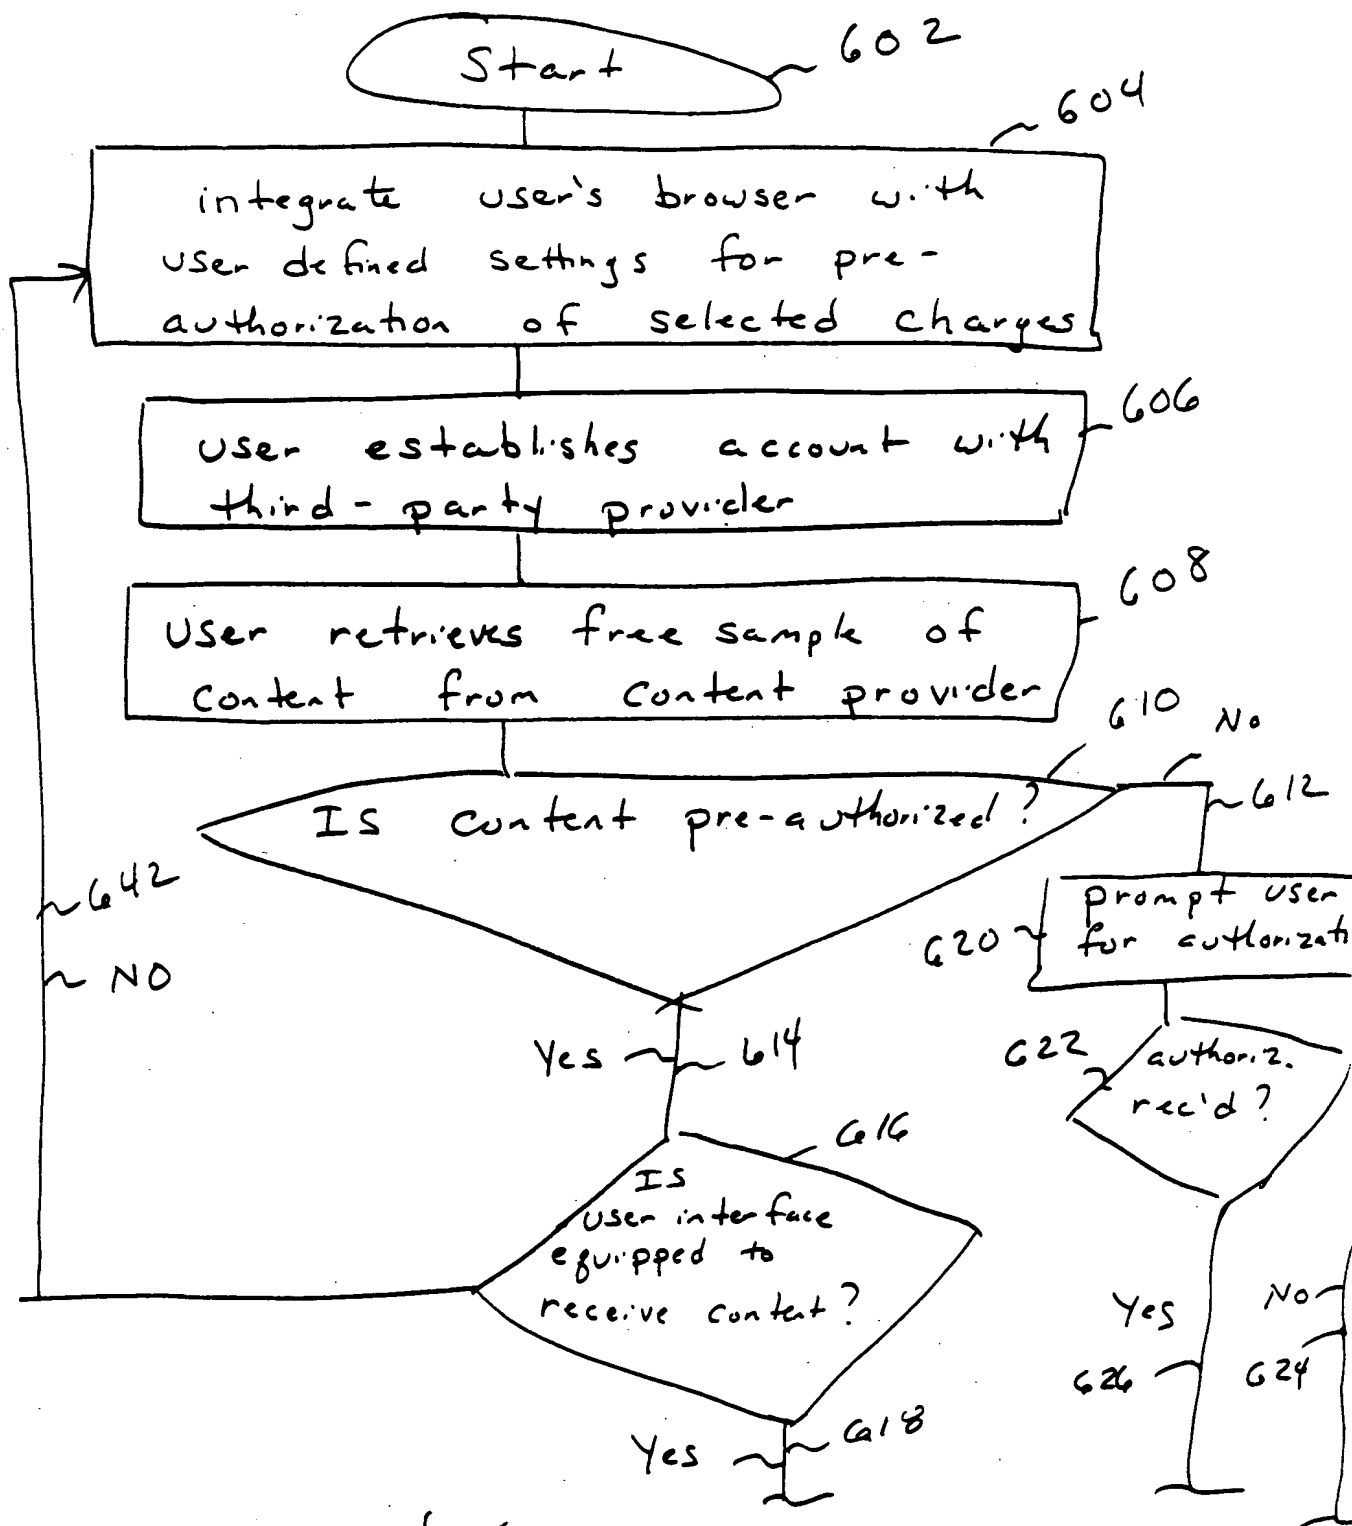 Start
602
604
integrate user's browser with
user defined settings for pre-
authorization of selected charges
606
user establishes account with
third-party provider
608
User retrieves free sample of
content from content provider
610
No
Is content pre-authorized?
612
642
NO
prompt user
620
for
Yes
614
622
authoriz.
rec'd?
616
Is
user interface
equipped to
receive content?
Yes
626
No
624
Yes
618